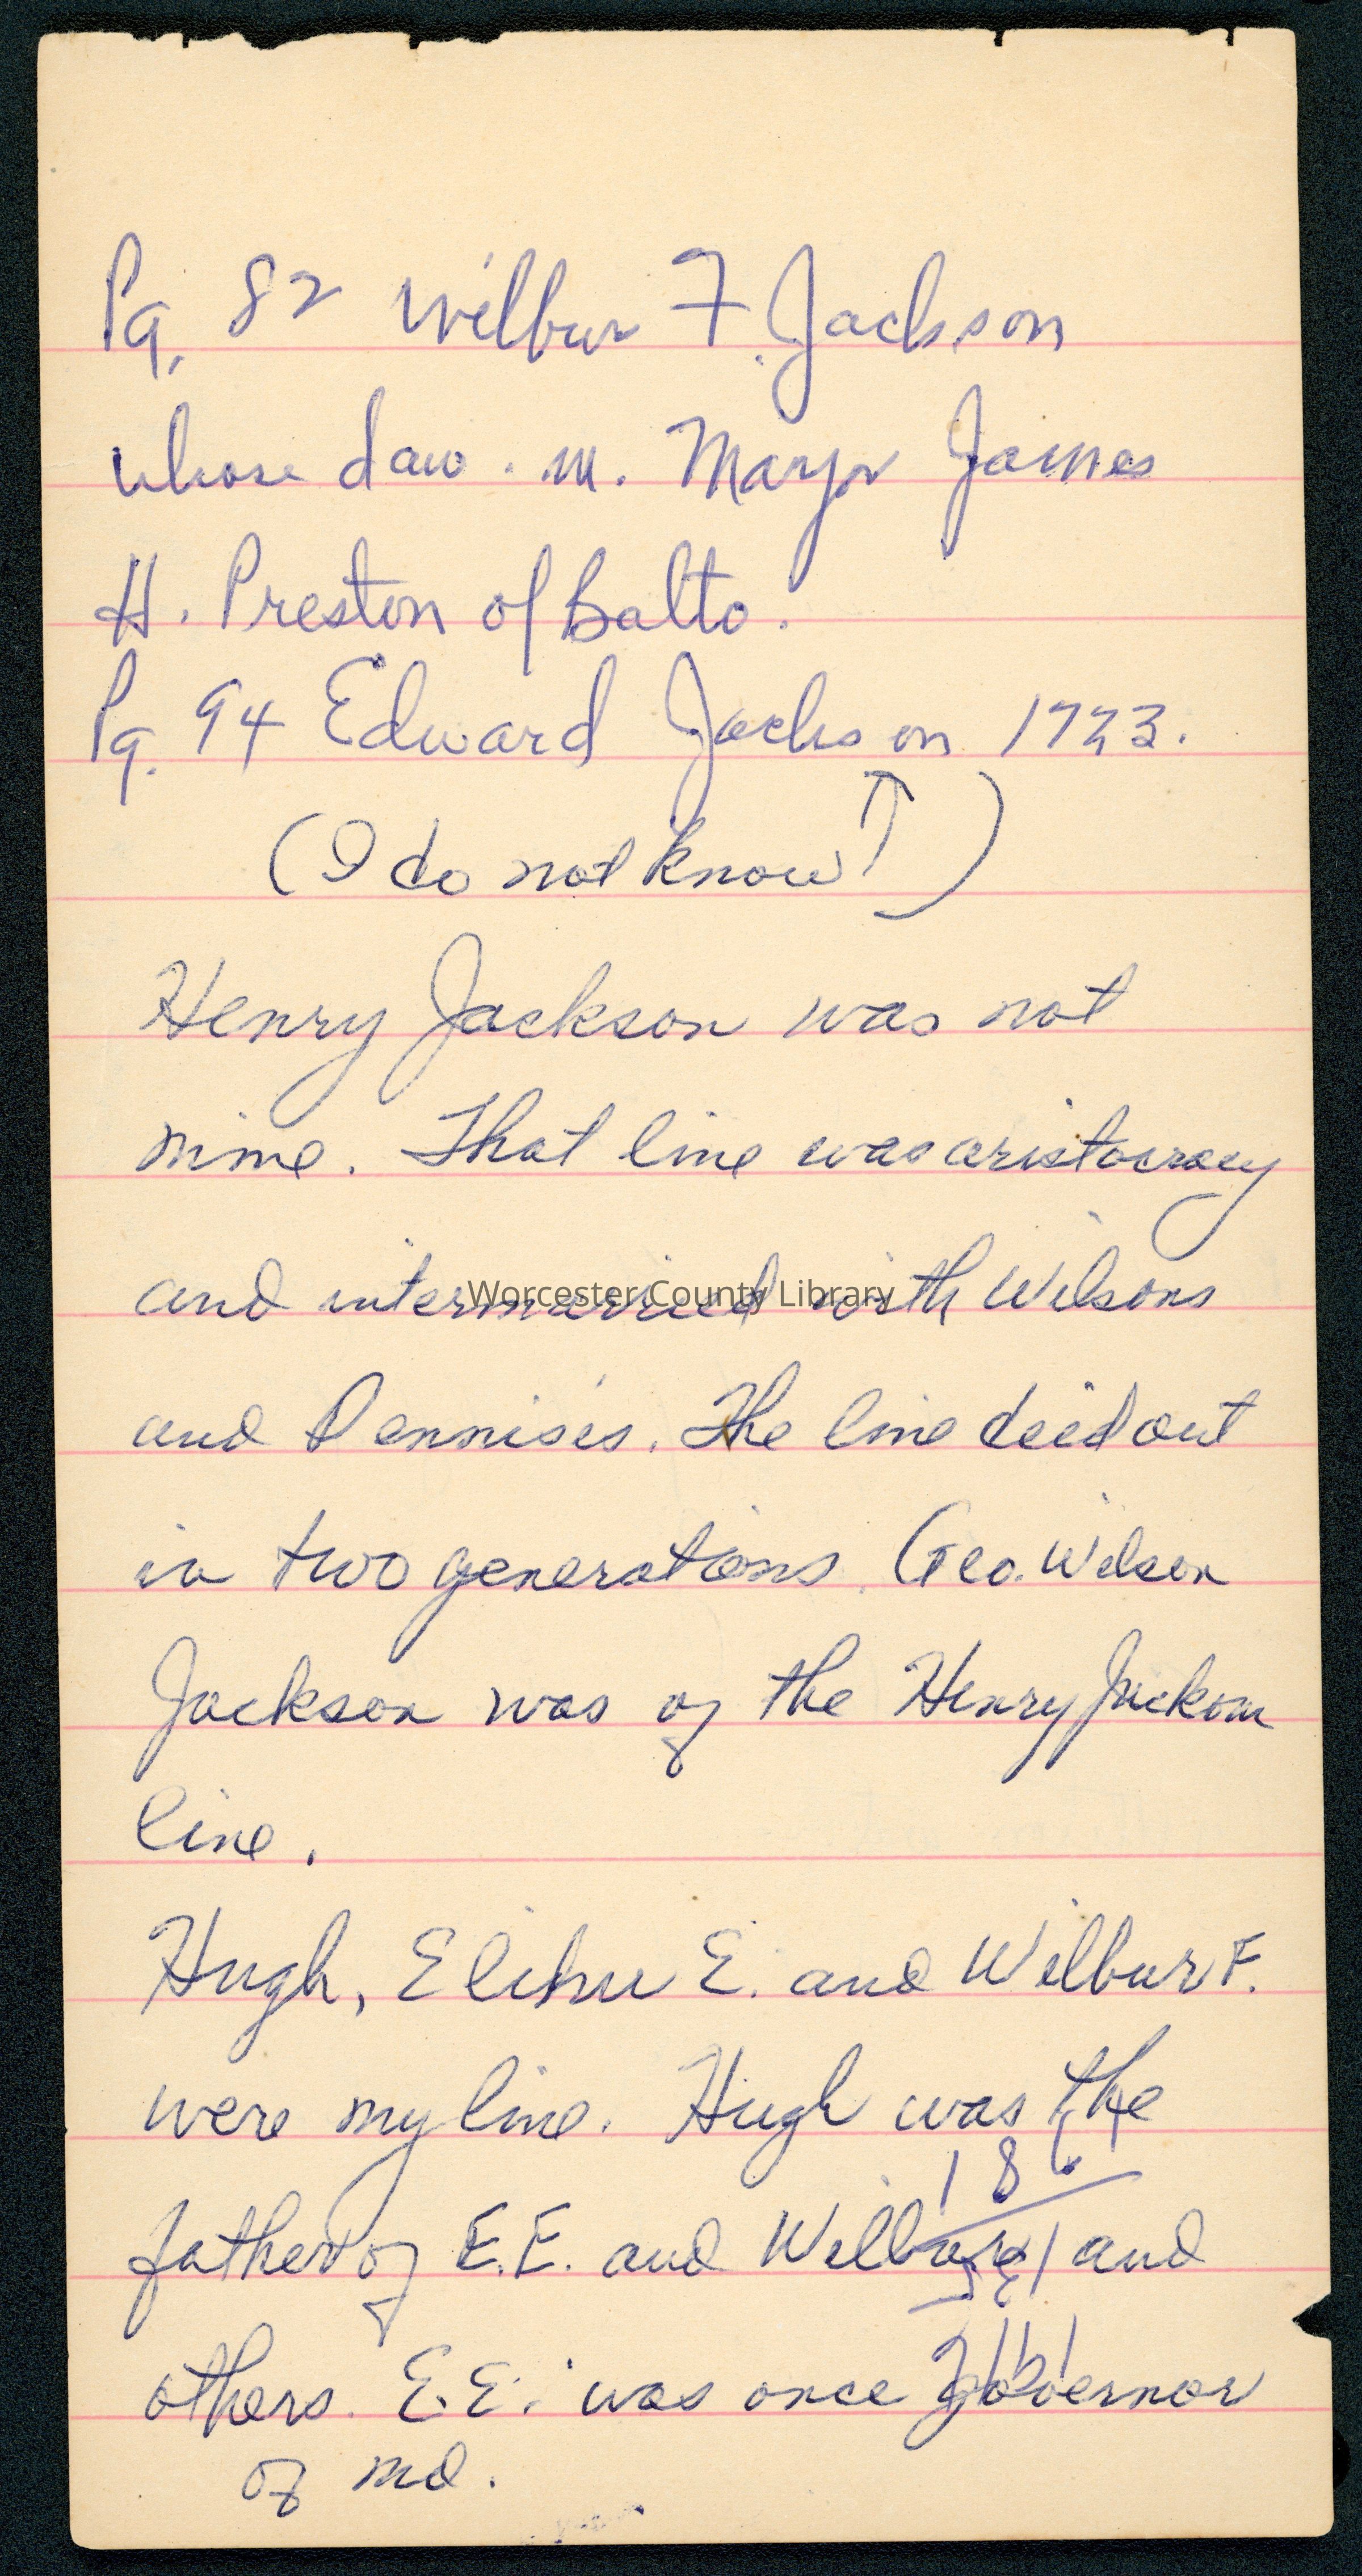 Pg. 82 Wilbur F. Jackson
whose daw. m. Mayor James
H. Preston of Balto.
Pg. 94 Edward Jackson 1723.
(I do not know ↑)
Henry Jackson was not
mine. That line was aristocracy
and intermarried with Wilsons
Worcester County Library
and Dennises. The line died out
in two generations. Geo. Wilson
Jackson was of the Henry Jackson
line.
Hugh, Elihu E. and Wilbur F.
were my line. Hugh was the
father of E.E. and Wilbur and
others. E.E. was once Governor
of Md.